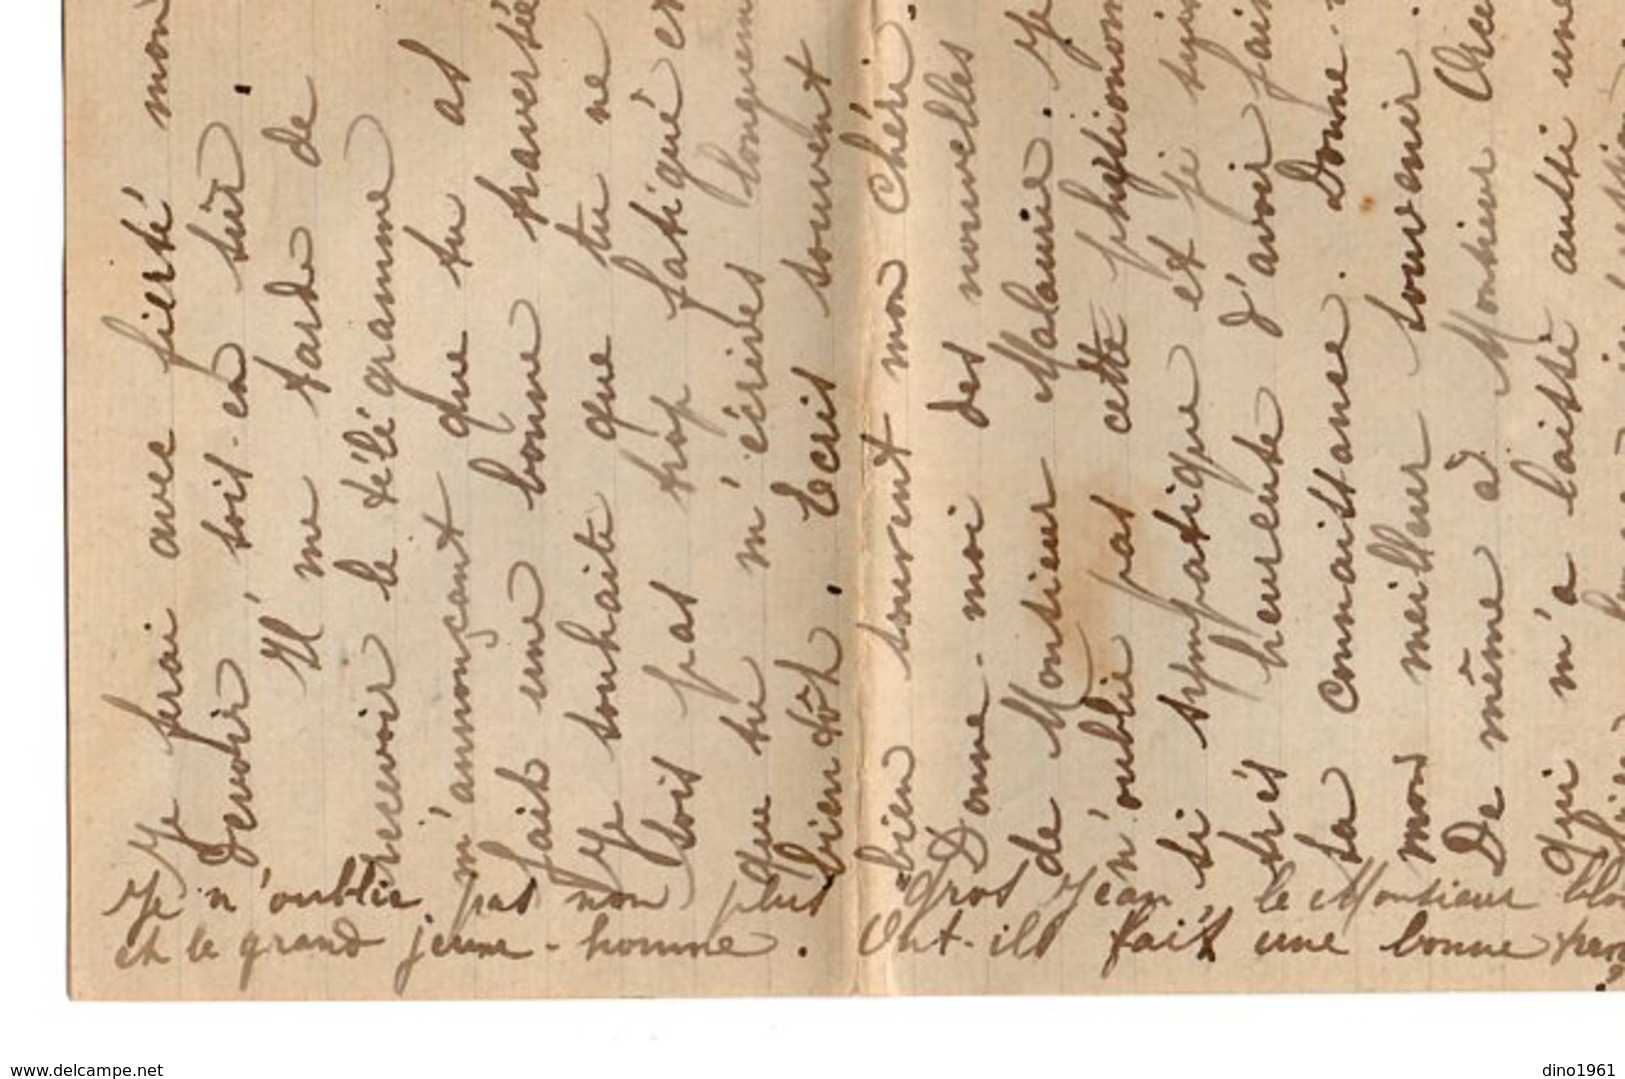 Je ferai avec fierté mon
devoir soit-en sûr.
Il me tarde de
recevoir le télégramme
m'annonçant que tu as
fait une bonne traversée
Je souhaite que tu ne
sois pas trop fatigué et
que tu m'écrives longuement
bientôt. Ecris souvent
bien souvent mon Chéri.
Donne-moi des nouvelles
de Monsieur Malaurie. Je
n'oublie pas cette physionomie
si sympatique et je suis
très heureuse d'avoir fait
sa connaissance. Donne-
mon meilleur souvenir.
De même à Monsieur
qui m'a laissé aussi une
Je n'oublie pas non plus "Gros Jean, le Monsieur
et le grand jeune-homme. Ont-ils fait une bonne
www.delcampe.net
dino1961